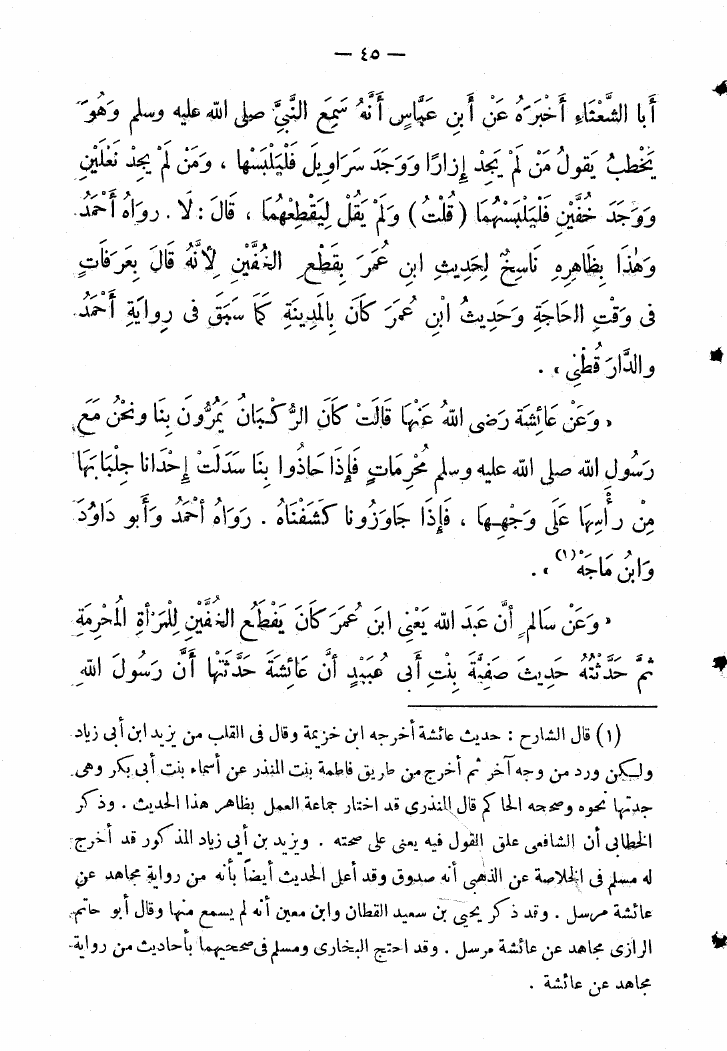 — ٤٥ —
أَبا الشَّعْثَاءِ أَخْبَرَهُ عَنْ أَبنِ عَبَّاسٍ أَنَّهُ سَمِعَ النَّبِيَّ صلى الله عليه وسلم وَهُوَ
يَخْطبُ يَقولُ مَنْ لَمْ يَجِدْ إِزارًا وَوَجَدَ سَرَاوِيلَ فَلْيَلْبَسْها ، وَمَنْ لَمْ يَجِدْ نَعْلَيْنِ
وَوَجَدَ خُفَّيْنِ فَلْيَلْبَسْهُمَا ( قُلْتُ ) وَلَمْ يَقُلْ لِيَقْطَعْهُمَا ، قَالَ : لَا . رواهُ أَحْمَدُ
وَهٰذَا بِظَاهِرِهِ نَاسِخٌ لِحَدِيثِ ابنِ عُمَرَ بِقَطْعِ الخُفَّيْنِ لِأَنَّهُ قَالَ بِعَرَفَاتٍ
فى وَقْتِ الحَاجَةِ وَحَدِيثُ ابْنِ عُمَرَ كَانَ بِالمَدِينَةِ كَمَا سَبَقَ فى رِوايَةِ أَحْمَدَ
والدَّارَ قُطْنِى » .
« وَعَنْ عَائِشَةَ رَضى اللهُ عَنْهَا قَالَتْ كَانَ الرُّكْبَانُ يَمُرُّونَ بِنَا ونَحْنُ مَعَ
رَسُولِ الله صلى الله عليه وسلم مُحْرِمَاتٍ فَإِذَا حَاذُوا بِنَا سَدَلَتْ إِحْدَانا جِلْبَابَهَا
مِنْ رَأْسِهَا عَلَى وَجْهِهَا ، فَإِذَا جَاوَزُونا كَشَفْنَاهُ . رَوَاهُ أَحْمَدُ وَأَبو دَاوُدَ
وَابْنُ مَاجَهْ (١) » .
« وَعَنْ سَالِمٍ أَنَّ عَبْدَ الله يَعْنِى ابنَ عُمَرَ كَانَ يَقْطَعُ الخُفَّيْنِ لِلْمَرْأَةِ المُحْرِمَةِ
ثُمَّ حَدَّثَتْهُ حَدِيثَ صَفِيَّةَ بِنْتِ أَبى عُبَيْدٍ أَنَّ عَائِشَةَ حَدَّثَتْهَا أَنَّ رَسُولَ اللهِ
(١) قال الشارح : حديث عائشة أخرجه ابن خزيمة وقال فى القلب من يزيد ابن أبى زياد
ولكن ورد من وجه آخر ثم أخرج من طريق فاطمة بنت المنذر عن أسماء بنت أبى بكر وهى
جدتها نحوه وصححه الحاكم قال المنذرى قد اختار جماعة العمل بظاهر هذا الحديث . وذكر
الخطابى أن الشافعى علق القول فيه يعنى على صحته . ويزيد بن أبى زياد المذكور قد أخرج
له مسلم فى الخلاصة عن الذهبى أنه صدوق وقد أعل الحديث أيضاً بأنه من رواية مجاهد عن
عائشة مرسل . وقد ذكر يحيى بن سعيد القطان وابن معين أنه لم يسمع منها وقال أبو حاتم
الرازى مجاهد عن عائشة مرسل . وقد احتج البخارى ومسلم فى صحيحيهما بأحاديث من رواية
مجاهد عن عائشة .